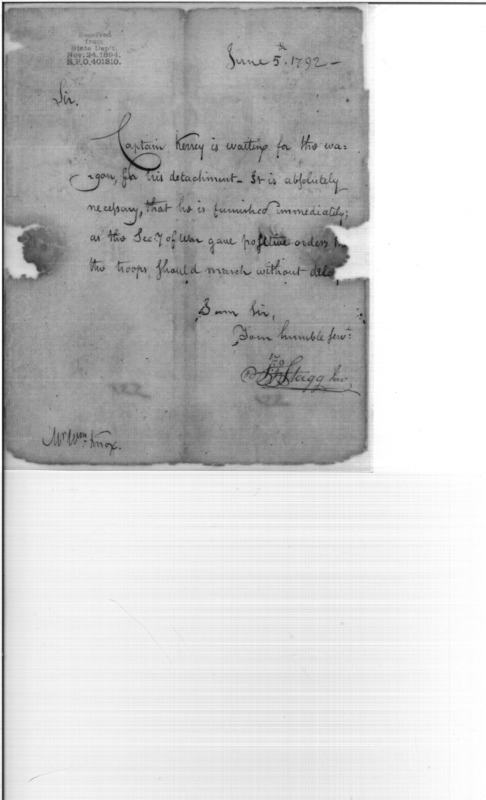 Received
from
State Dep't.
Nov. 24, 1894.
R.P.O. 401310.
June 5th. 1792 –
Sir.
Captain Kersey is waiting for the wa=
=gon, for his detachment – It is absolutely
necessary, that he is furnished immediately;
as the Secy of War gave positive orders
the troops should march without delay,
I am Sir,
Your humble servt:
Jno Stagg Junr
Mr Wm Knox.